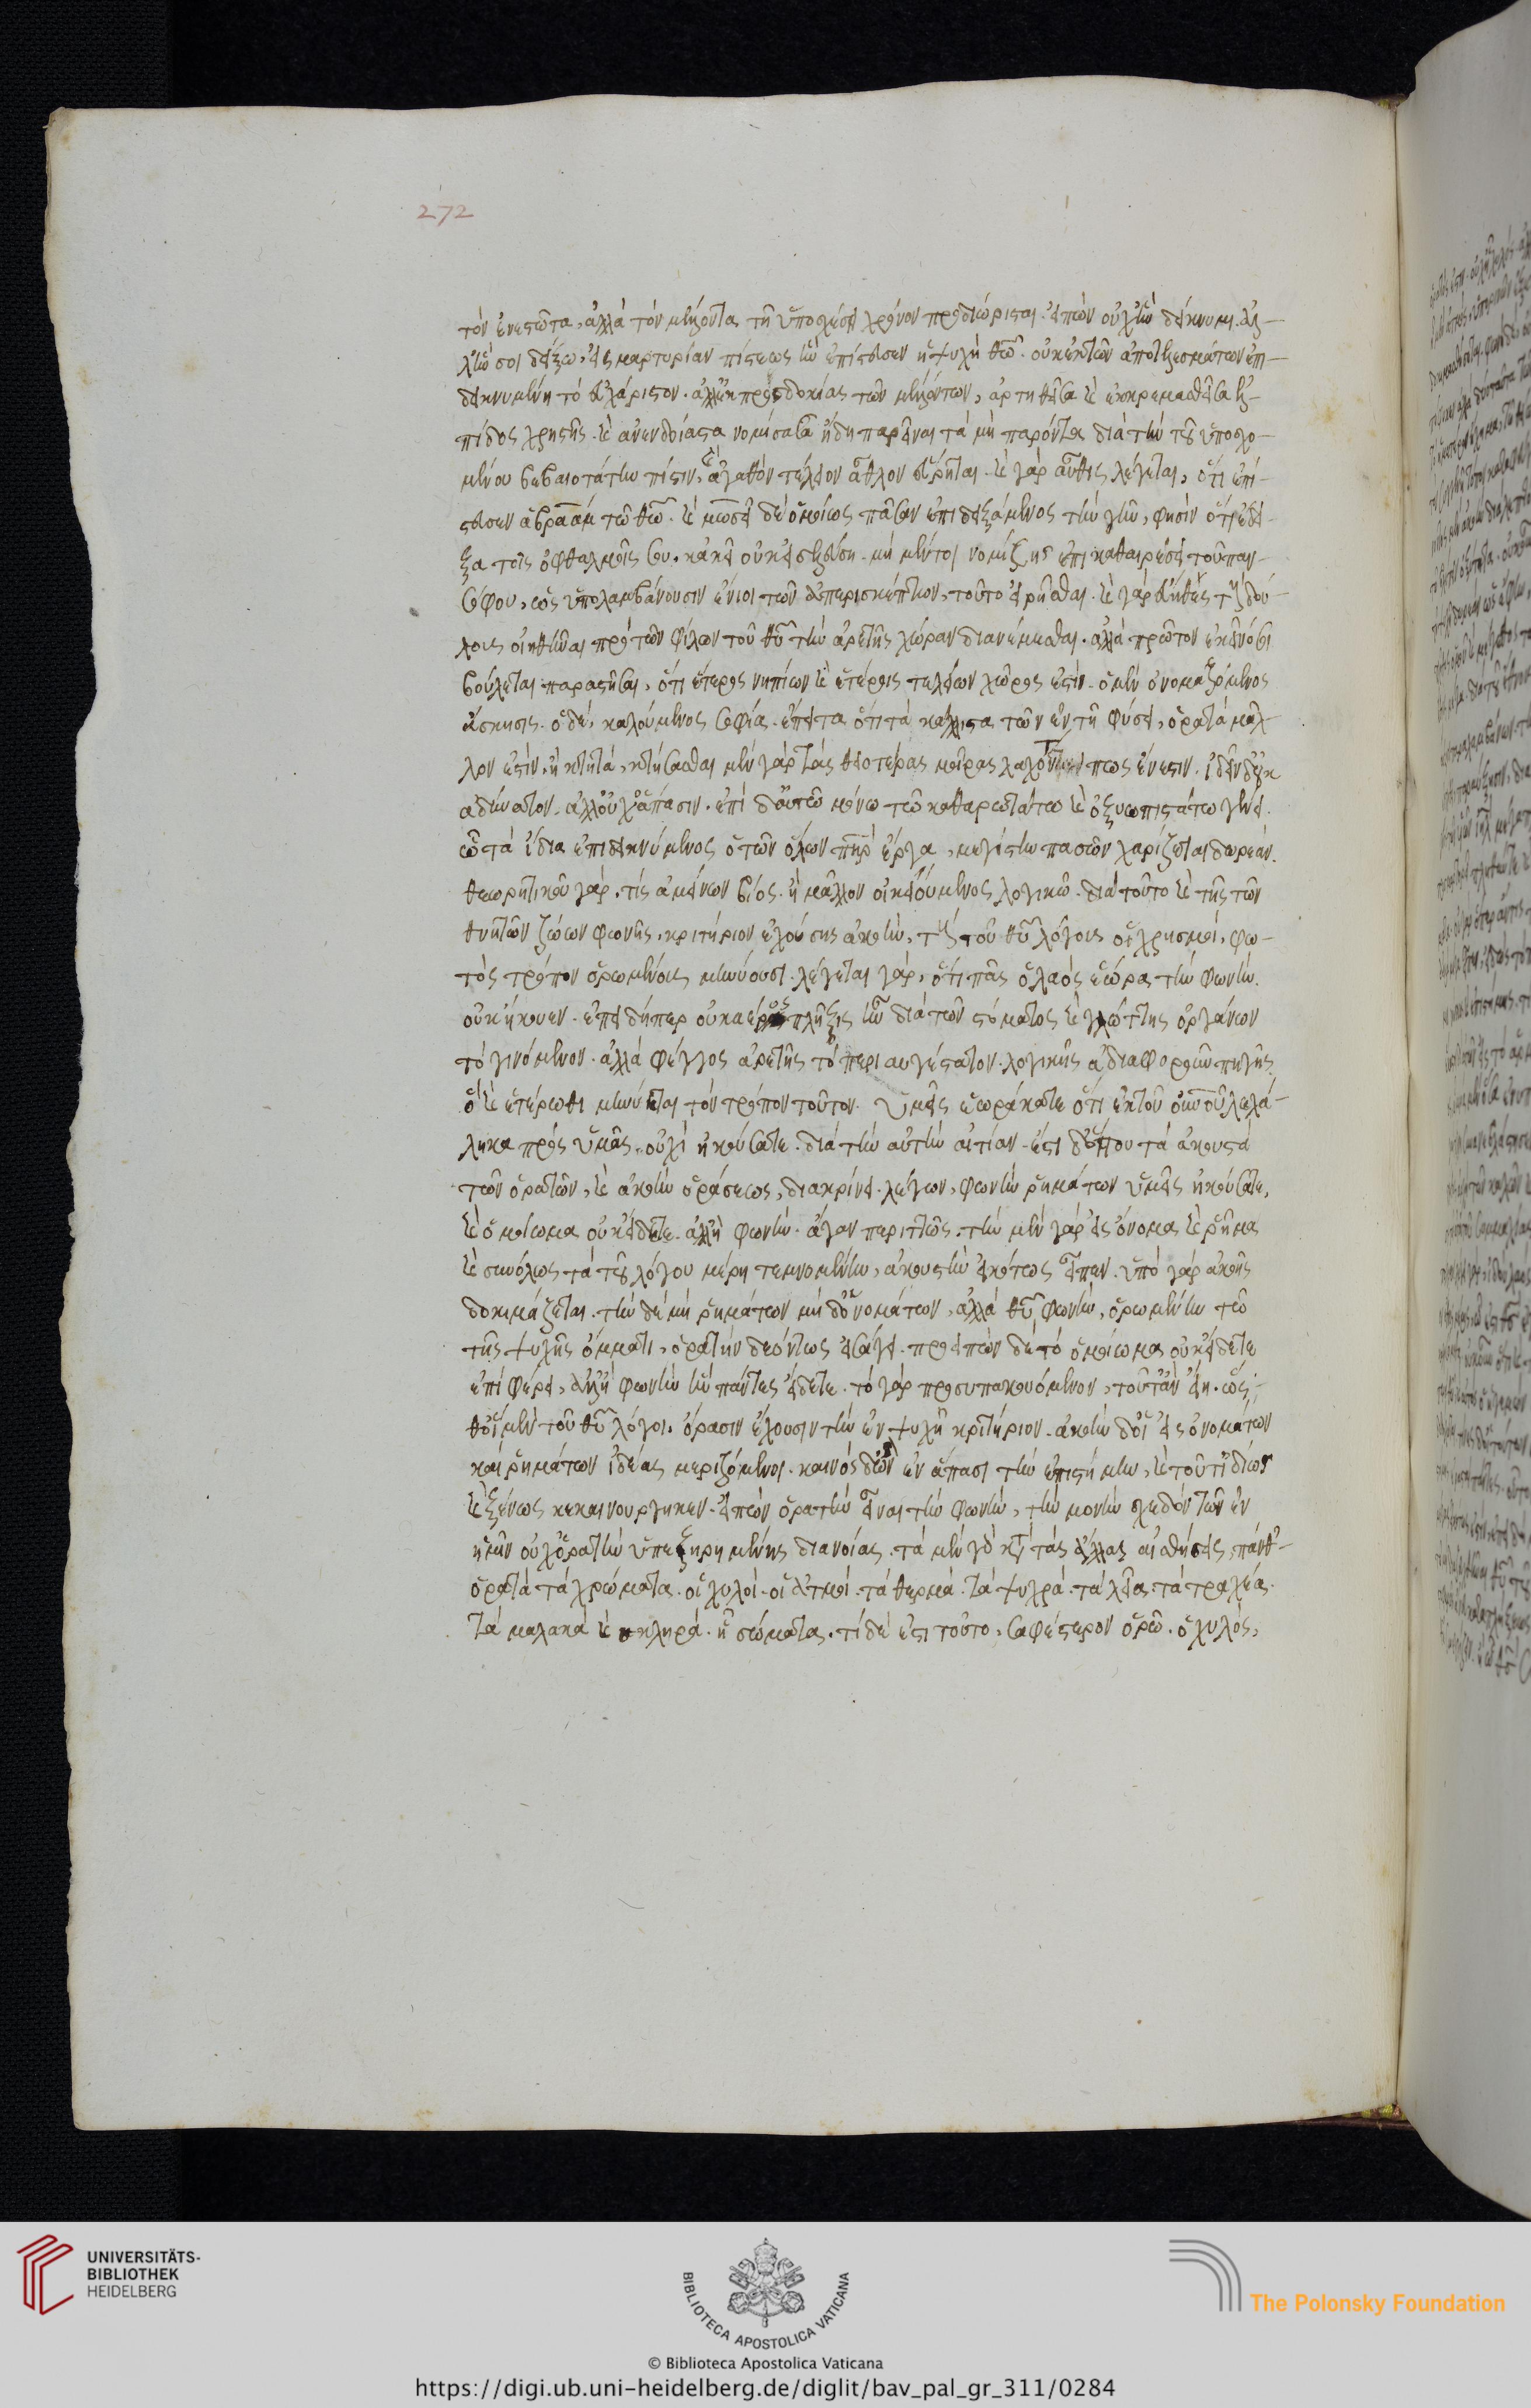 272
τὸν ἐνεστῶτα, ἀλλὰ τὸν μέλλοντα τῇ ὑποσχέσει χρόνον προδιώρισται. εἰπὼν οὐχ ἣν δείκνυμι. ἀλ-
λ' ἥν σοι δείξω, εἰς μαρτυρίαν πίστεως ἣν ἐπίστευσεν ἡ ψυχὴ θῶ. οὐκ ἐκ τῶν ἀποτελεσμάτων ἐπι-
δεικνυμένη τὸ εὐχάριστον. ἀλλ' ἐκ προσδοκίας τῶν μελλόντων, ἀρτηθεῖσα καὶ ἐκκρεμασθεῖσα ἐλ-
πίδος χρηστῆς. καὶ ἀνενδοίαστα νομίσασα ἤδη παρεῖναι τὰ μὴ παρόντα διὰ τὴν τοῦ ὑποσχο-
μένου βεβαιοτάτην πίστιν, ἀγαθὸν τέλειον ἆθλον εὕρηται. καὶ γὰρ αὖθις λέγεται, ὅτι ἐπί-
στευσεν ἀβραὰμ τῶ θῶ. καὶ μωσεῖ δὲ ὁμοίως πᾶσαν ἐπιδειξάμενος τὴν γῆν, φησὶν ὅτι ἔδει-
ξα τοῖς ὀφθαλμοῖς σου. κἀκεῖ οὐκ εἰσελεύση. μὴ μέντοι νομίζης ἐπὶ καθαιρέσει τοῦ παν-
σόφου, ὡς ὑπολαμβάνουσιν ἔνιοι τῶν ἀπερισκέπτων, τοῦτο εἰρῆσθαι. καὶ γὰρ εὔηθες τοὺς δού-
λους οἰηθῆναι πρὸ τῶν φίλων τοῦ θῦ τὴν ἀρετῆς χώραν διανέμεσθαι. ἀλλὰ πρῶτον ἐκεῖνό σοι
βούλεται παραστῆσαι, ὅτι ἕτερος νηπίων καὶ ἕτερος τελείων χῶρος ἐστίν. ὁ μὲν ὀνομαζόμενος
ἄσκησις. ὁ δὲ, καλούμενος σοφία. ἔπειτα ὅτι τὰ κάλλιστα τῶν ἐν τῇ φύσει, ὁρατὰ μᾶλ-
λον ἐστὶν, ἢ κτητὰ, κτήσασθαι μὲν γὰρ τὰς θειοτέρας μοίρας λαχόντα πῶς ἔνεστιν. ἰδεῖν δ' οὐκ
ἀδύνατον. ἀλλ' οὐχ ἅπασιν. ἐπὶ δ' αὐτὸ μόνω τῶ καθαρωτάτω καὶ ὀξυωπιστάτω γένει.
ὧ τὰ ἴδια ἐπιδεικνύμενος ὁ τῶν ὅλων πὴρ ἔργα, μεγίστην πασῶν χαρίζεται δωρεάν.
θεωρητικοῦ γὰρ. τίς ἀμείνων βίος. ἢ μᾶλλον οἰκειούμενος λογικῶ. διὰ τοῦτο καὶ τῆς τῶν
θνητῶν ζώων φωνῆς, κριτήριον ἐχούσης ἀκοὴν, τοὺς τοῦ θῦ λόγους οἱ χρησμοὶ, φω-
τὸς τρόπον ὁρωμένους μηνύουσι. λέγεται γὰρ, ὅτι πᾶς ὁ λαὸς ἑώρα τὴν φωνήν.
οὐκ ἤκουεν. ἐπειδήπερ οὐκ ἀέρος πλῆξις ἦν διὰ τῶν στόματος καὶ γλώττης ὀργάνων
τὸ γινόμενον. ἀλλὰ φέγγος ἀρετῆς τὸ περιαυγέστατον. λογικῆς ἀδιαφοροῦν πηγῆς.
ὃ καὶ ἑτέρωθι μηνύεται τὸν τρόπον τοῦτον. ὑμεῖς ἑωράκατε ὅτι ἐκ τοῦ οὐνοῦ λελά-
ληκα πρὸς ὑμᾶς. οὐχὶ ἠκούσατε. διὰ τὴν αὐτὴν αἰτίαν. ἔστι δ' ὅπου τὰ ἀκουστὰ
τῶν ὁρατῶν, καὶ ἀκοὴν ὁράσεως, διακρίνει. λέγων, φωνὴν ῥημάτων ὑμεῖς ἠκούσατε,
καὶ ὁμοίωμα οὐκ εἴδετε. ἀλλ' ἢ φωνήν. ἄγαν περιττῶς. τὴν μὲν γὰρ εἰς ὄνομα καὶ ῥῆμα
καὶ συνόλως τὰ τοῦ λόγου μέρη τεμνομένην, ἀκουστὴν εἰκότως εἶπεν. ὑπὸ γὰρ ἀκοῆς
δοκιμάζεται. τὴν δὲ μὴ ῥημάτων μὴ δ' ὀνομάτων, ἀλλὰ θῦ φωνὴν, ὁρωμένην τῶ
τῆς ψυχῆς ὄμματι, ὁρατὴν δεόντως εἰσάγει. προειπὼν δὲ τὸ ὁμοίωμα οὐκ εἴδετε
ἐπιφέρει, ἀλλ' ἢ φωνὴν ἣν πάντες εἴδετε. τὸ γὰρ προσυπακουόμενον, τοῦτ' ἂν εἴη. ὥς-
θ' οἱ μὲν τοῦ θῦ λόγοι, ὅρασιν ἔχουσιν τὴν ἐν ψυχῇ κριτήριον. ἀκοὴν δ' οἱ εἰς ὀνομάτων
καὶ ῥημάτων ἰδέας μεριζόμενοι. καινὸς δ' ὢν ἐν ἅπασι τὴν ἐπιστήμην, καὶ τοῦτ' ἰδίως
καὶ ξένως κεκαινούργηκεν. εἰπὼν ὁρατὴν εἶναι τὴν φωνὴν, τὴν μονὴν σχεδὸν τῶν ἐν
ἡμῖν οὐχ ὁρατὴν ὑπεξηρημένης διανοίας. τὰ μὲν γὰρ κατὰ τὰς ἄλλας αἰσθήσεις, πάνθ'
ὁρατὰ τὰ χρώματα. οἱ χυλοί. οἱ ἀτμοί. τὰ θερμά. τὰ ψυχρά. τὰ λεῖα. τὰ τραχέα.
τὰ μαλακὰ καὶ σκληρά. ᾗ σώματα. τί δέ ἐστι τοῦτο, σαφέστερον ἐρῶ. ὁ χυλὸς,
UNIVERSITÄTS-
BIBLIOTHEK
HEIDELBERG
BIBLIOTECA APOSTOLICA VATICANA
The Polonsky Foundation
© Biblioteca Apostolica Vaticana
https://digi.ub.uni-heidelberg.de/diglit/bav_pal_gr_311/0284